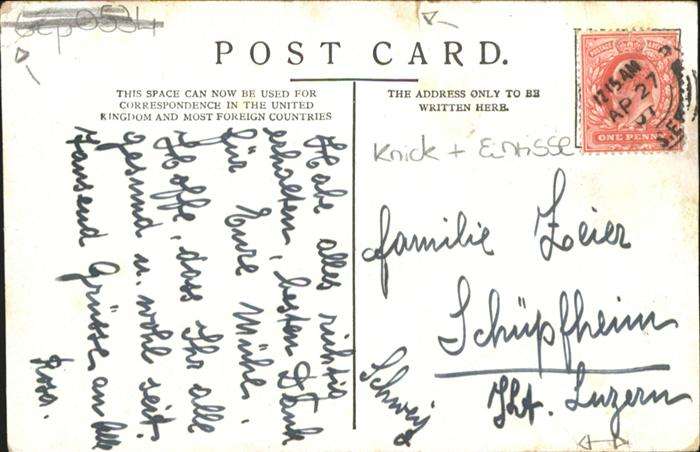 POST CARD.
THIS SPACE CAN NOW BE USED FOR
CORRESPONDENCE IN THE UNITED
KINGDOM AND MOST FOREIGN COUNTRIES
THE ADDRESS ONLY TO BE
WRITTEN HERE.
ONE PENNY
12 15 AM
AP 27
07
Knick + Einrisse
Habe alles richtig
erhalten, besten Dank
für Eure Mühe.
Hoffe, dass Ihr alle
gesund u. wohl seit.
Tausend Grüsse an alle
Rosa.
Familie Zeier
Schüpfheim
Kt. Luzern
Schweiz